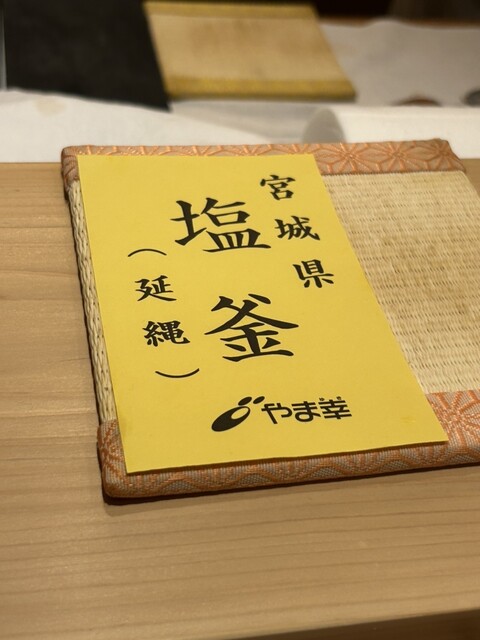 宮城県
塩釜
（延縄）
やま幸